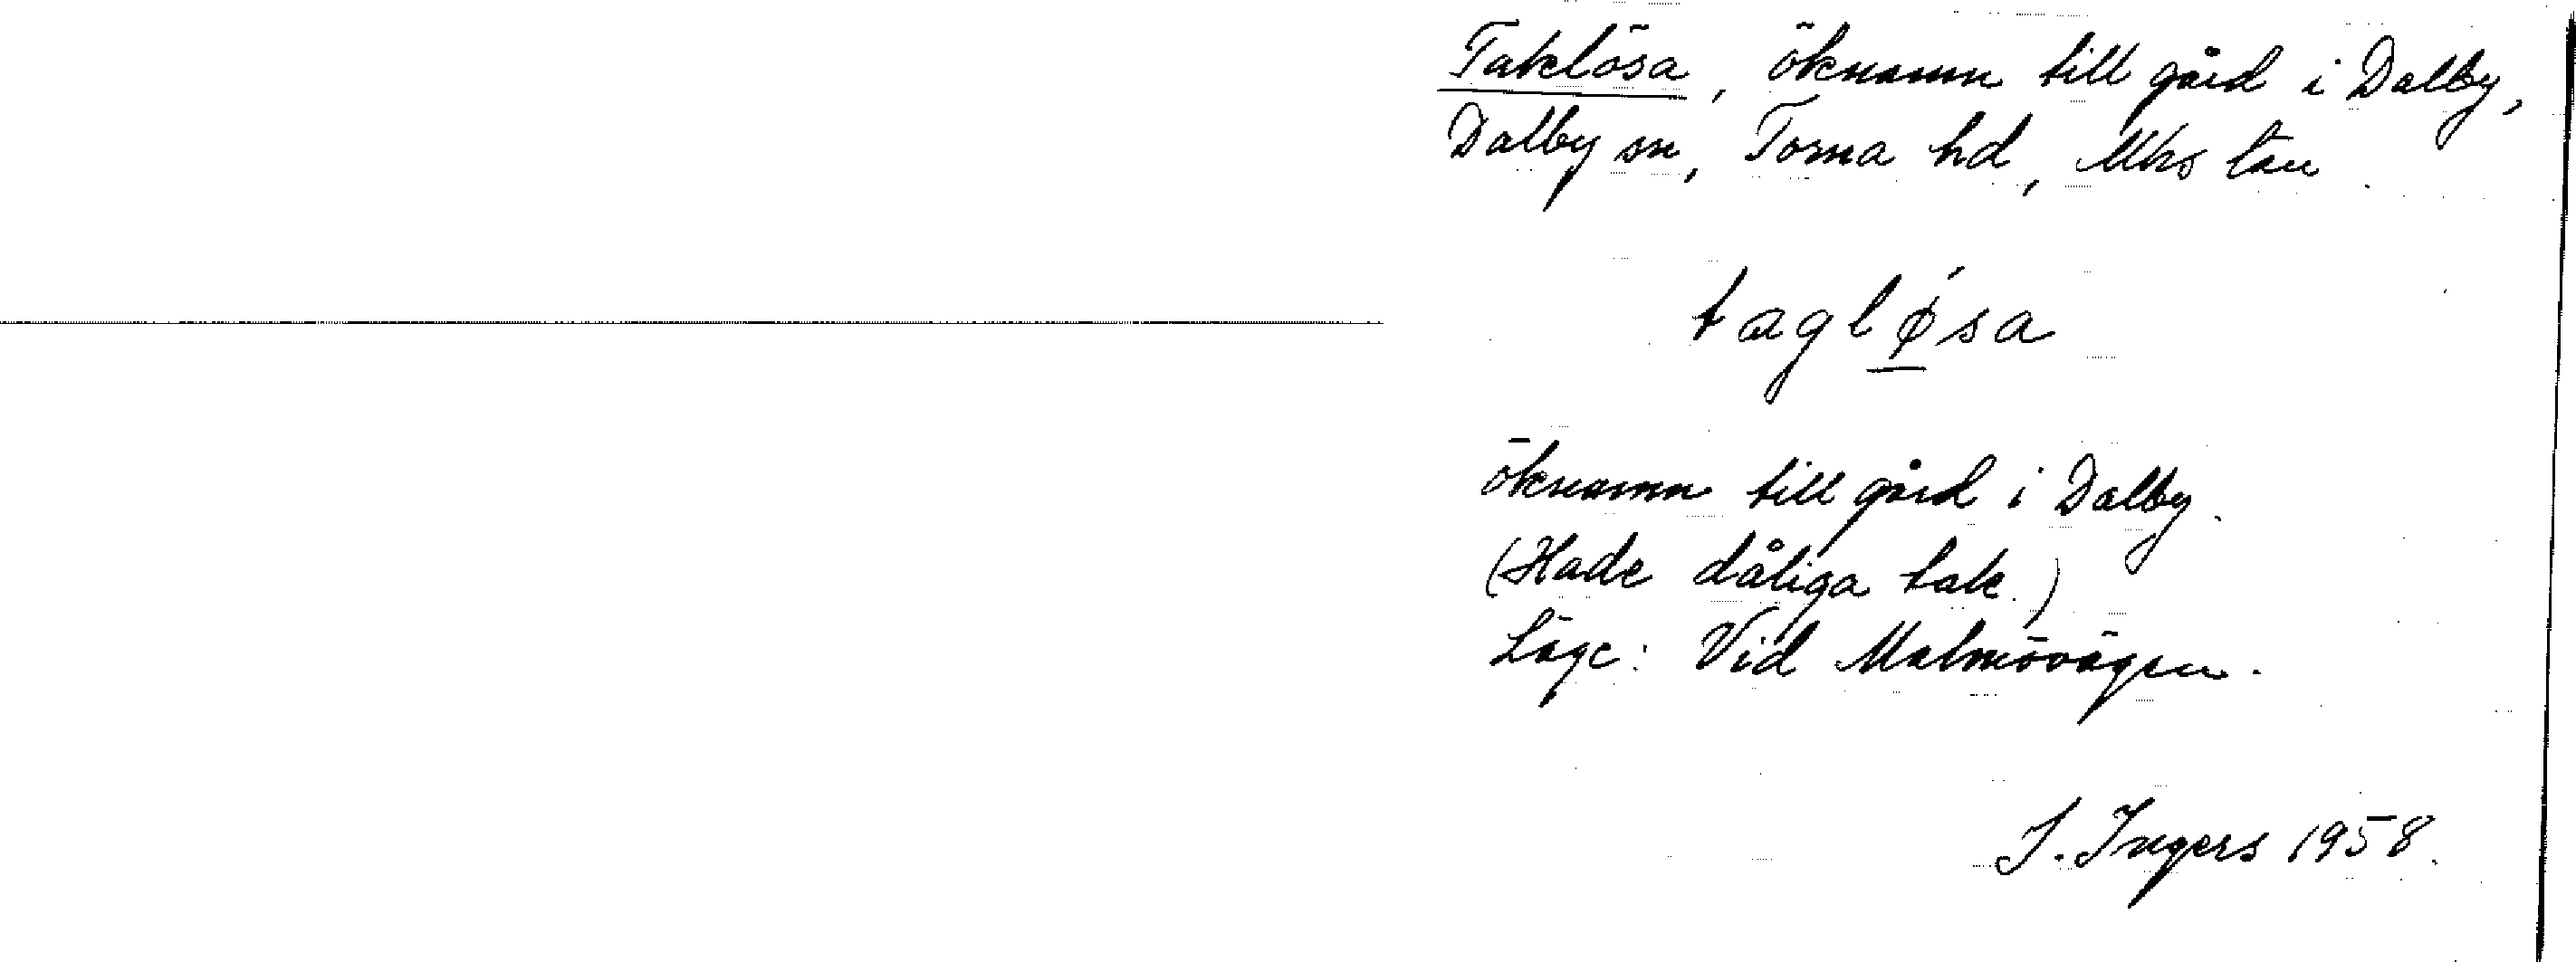 Taklösa, öknamn till gård i Dalby,
Dalby sn, Torna hd, Mhs län
taglǿsa
öknamn till gård i Dalby.
(Hade dåliga tak.)
Läge: Vid Malmövägen.
I. Ingers 1958.